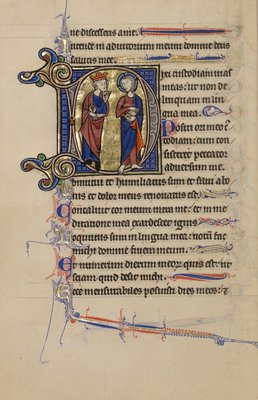 ne discesseris a me.
Intende in adiutorium meum domine deus
salutis mee.
Dixi custodiam uias
meas: ut non de
linquam in lin
gua mea.
Posui ori meo c
todiam: cum con
sisteret peccator
aduersum me.
Obmutui et humiliatus sum et silui a bo
nis et dolor meus renouatus est.
Concaluit cor meum intra me: et in me
ditatione mea exardescet ignis
Locutus sum in lingua mea: notū fac
michi domine finem meum.
Et numerum dierum meoꝝ quis est: ut
sciam quid desit michi.
Ecce mensurabiles posuisti dies meos: &